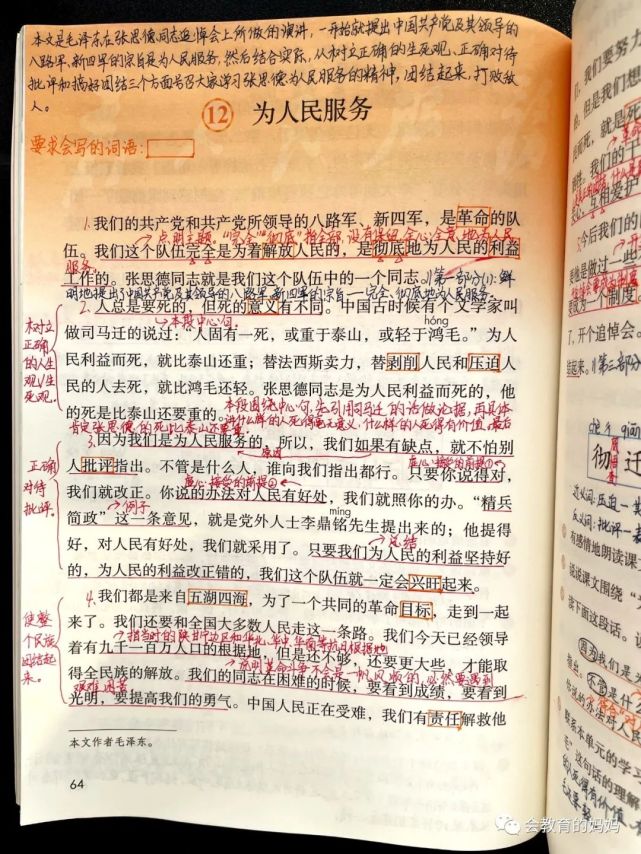 本文是毛泽东在张思德同志追悼会上所做的演讲，一开始就提出中国共产党及其领导的
八路军、新四军的宗旨是为人民服务，然后结合实际，从树立正确的生死观、正确对待
批评和搞好团结三个方面号召大家学习张思德为人民服务的精神，团结起来，打败敌
人。
12 为人民服务
要求会写的词语：
1.我们的共产党和共产党所领导的八路军、新四军，是革命的队
点明主题。“完全”“彻底”指全部，没有保留，全心全意地为人民
服务。
伍。我们这个队伍完全是为着解放人民的，是彻底地为人民的利益
工作的。张思德同志就是我们这个队伍中的一个同志。
//第一部分(1)：鲜
明地提出了中国共产党及其领导的八路军、新四军的宗旨——完全、彻底地为人民服务。
2.人总是要死的，但死的意义有不同。中国古时候有个文学家叫
本段中心句
hóng
做司马迁的说过：“人固有一死，或重于泰山，或轻于鸿毛。”为人
民利益而死，就比泰山还重；替法西斯卖力，替剥削人民和压迫人
民的人去死，就比鸿毛还轻。张思德同志是为人民利益而死的，他
的死是比泰山还要重的。
树立
正确
的人生
观、生
死观。
3.因为我们是为人民服务的，所以，我们如果有缺点，就不怕别
原因
人批评指出。不管是什么人，谁向我们指出都行。只要你说得对，
虚心接受的前提①
我们就改正。你说的办法对人民有好处，我们就照你的办。“精兵
虚心接受的前提②
例子
míng
简政”这一条意见，就是党外人士李鼎铭先生提出来的；他提得
好，对人民有好处，我们就采用了。只要我们为人民的利益坚持好
总结
的，为人民的利益改正错的，我们这个队伍就一定会兴旺起来。
正确
对待
批评。
4.我们都是来自五湖四海，为了一个共同的革命目标，走到一起
来了。我们还要和全国大多数人民走这一条路。我们今天已经领导
指当时的陕甘宁边区和华北、华中、华南等抗日根据地
着有九千一百万人口的根据地，但是还不够，还要更大些，才能取
得全民族的解放。我们的同志在困难的时候，要看到成绩，要看到
艰难困苦
光明，要提高我们的勇气。中国人民正在受难，我们有责任解救他
使整
个民族
团结起
来。
本文作者毛泽东。
64
会教育的妈妈